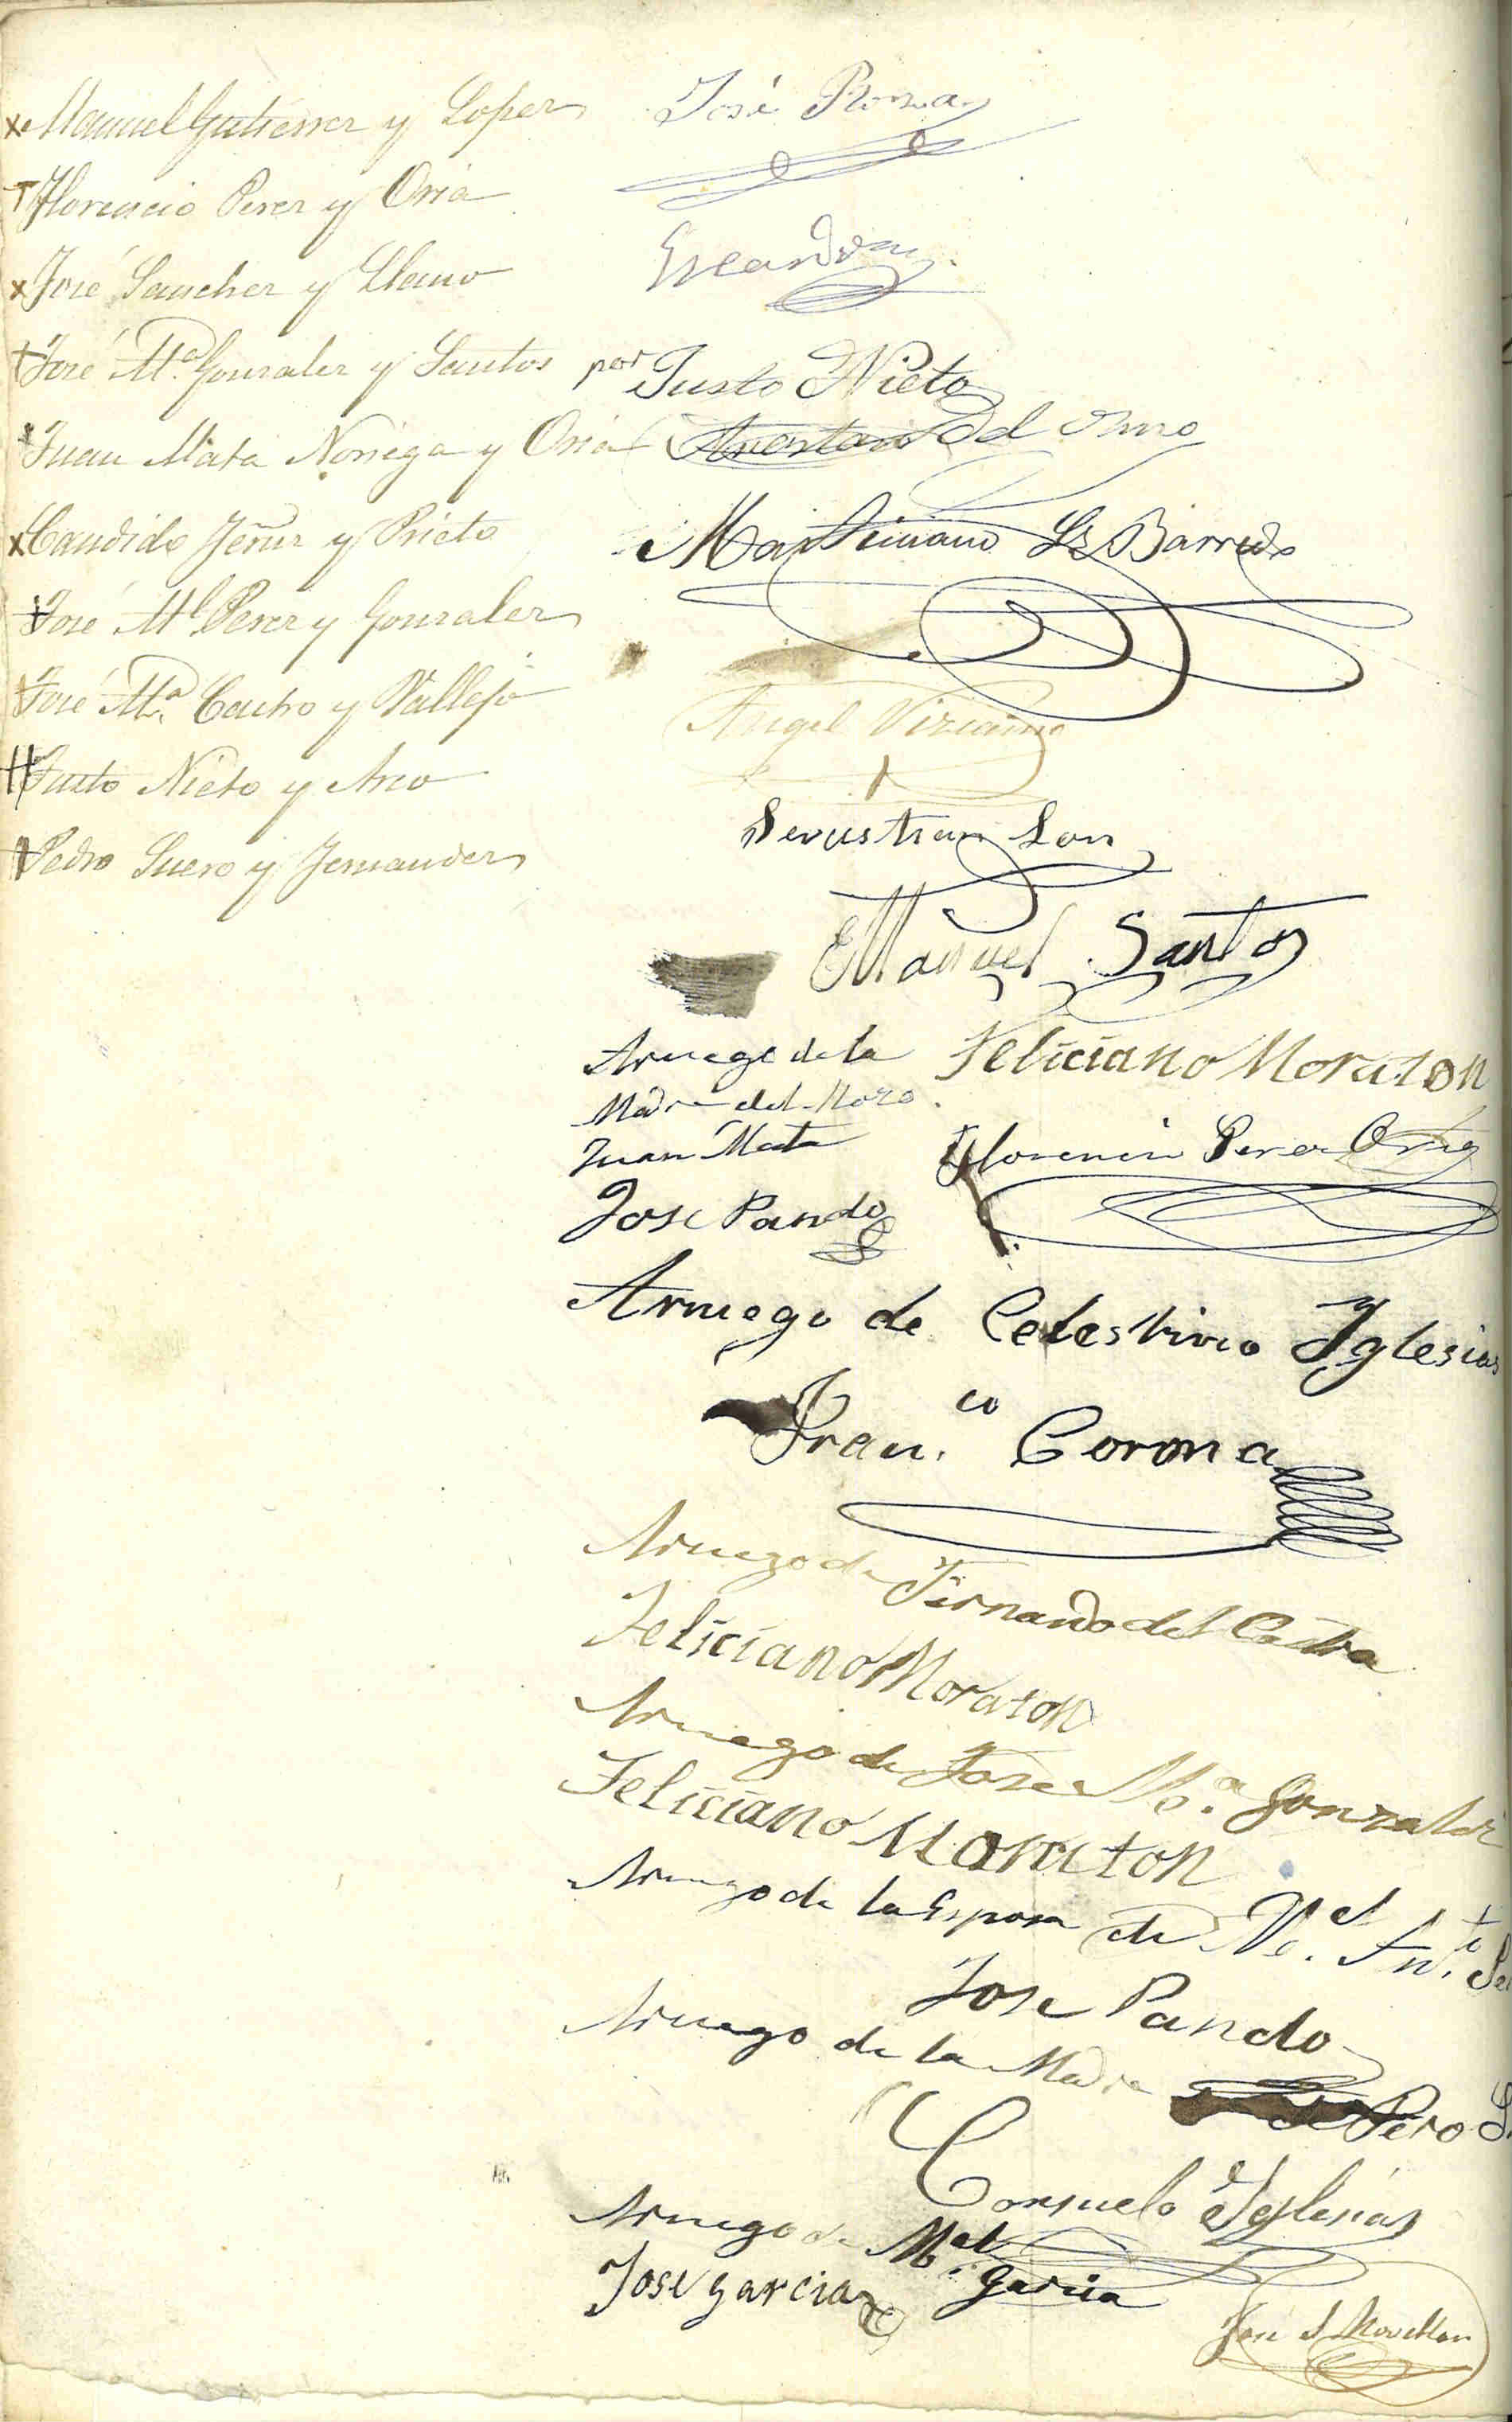 Manuel Gutierrez y Lopez
Florencio Perez y Oria
José Sanchez y Llano
José Mª Gonzalez y Santos
Juan Mata Noriega y Oria
Candido Jeñez y Prieto
José Ml Perez y Gonzalez
José Mª Castro y Vallejo
Justo Nieto y Arco
Pedro Suero y Fernandez
José Roza
Escandon
por Justo Nieto
del
Martiniano Barredo
Angel Vizcaino
Sevustian Son
Manuel Santos
Arruego de la
Madre del Moro
Juan Mata
Feliciano Moraton
Florencio Perez Oria
Jose Pando
Arruego de Celestino Yglesias
Fran.co Corona
Arruego de Fernando del
Feliciano Moraton
Arruego de Jose M.a Gonzalez
Feliciano Moraton
Arruego de la Esposa de
Jose Pando
Arruego de la Madre de Pero
Consuelo Yglesias
Arruego de M.el Garcia
Jose Garcia
Jose